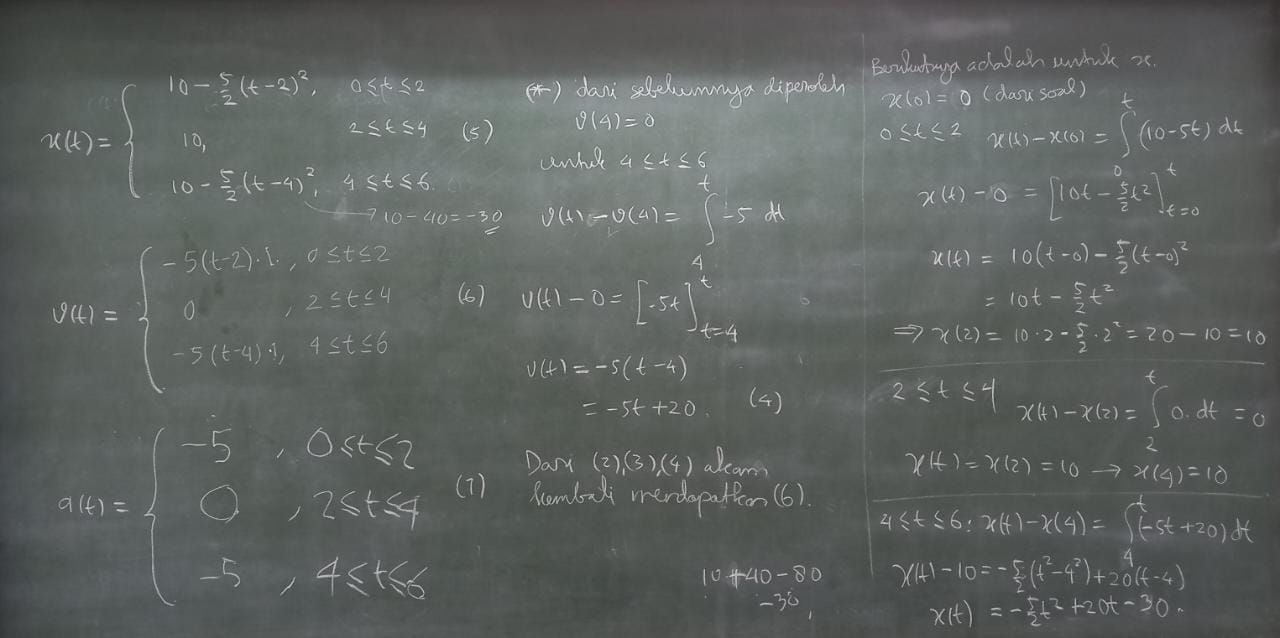 x(t) = { 10 - 5/2 (t-2)², 0 ≤ t ≤ 2
10, 2 ≤ t ≤ 4 (5)
10 - 5/2 (t-4)², 4 ≤ t ≤ 6.
→ 10 - 40 = -30
v(t) = { -5(t-2)·1, 0 ≤ t ≤ 2
0, 2 ≤ t ≤ 4 (6)
-5(t-4)·1, 4 ≤ t ≤ 6
a(t) = { -5, 0 ≤ t ≤ 2
0, 2 ≤ t ≤ 4 (7)
-5, 4 ≤ t ≤ 6
(*) dari sebelumnya diperoleh
v(4) = 0
untuk 4 ≤ t ≤ 6
v(t) - v(4) = ∫₄ᵗ -5 dt
v(t) - 0 = [-5t]ᵗₜ₌₄
v(t) = -5(t-4)
= -5t + 20. (4)
Dari (2), (3), (4) akan
kembali mendapatkan (6).
10 + 40 - 80
-30,
Berikutnya adalah untuk x.
x(0) = 0 (dari soal)
0 ≤ t ≤ 2 x(t) - x(0) = ∫₀ᵗ (10-5t) dt
x(t) - 0 = [10t - 5/2 t²]ᵗₜ₌₀
x(t) = 10(t-0) - 5/2 (t-0)²
= 10t - 5/2 t²
⇒ x(2) = 10·2 - 5/2·2² = 20 - 10 = 10
2 ≤ t ≤ 4
x(t) - x(2) = ∫₂ᵗ 0·dt = 0
x(t) = x(2) = 10 → x(4) = 10
4 ≤ t ≤ 6: x(t) - x(4) = ∫₄ᵗ (-5t+20) dt
x(t) - 10 = -5/2 (t²-4²) + 20(t-4)
x(t) = -5/2 t² + 20t - 30.